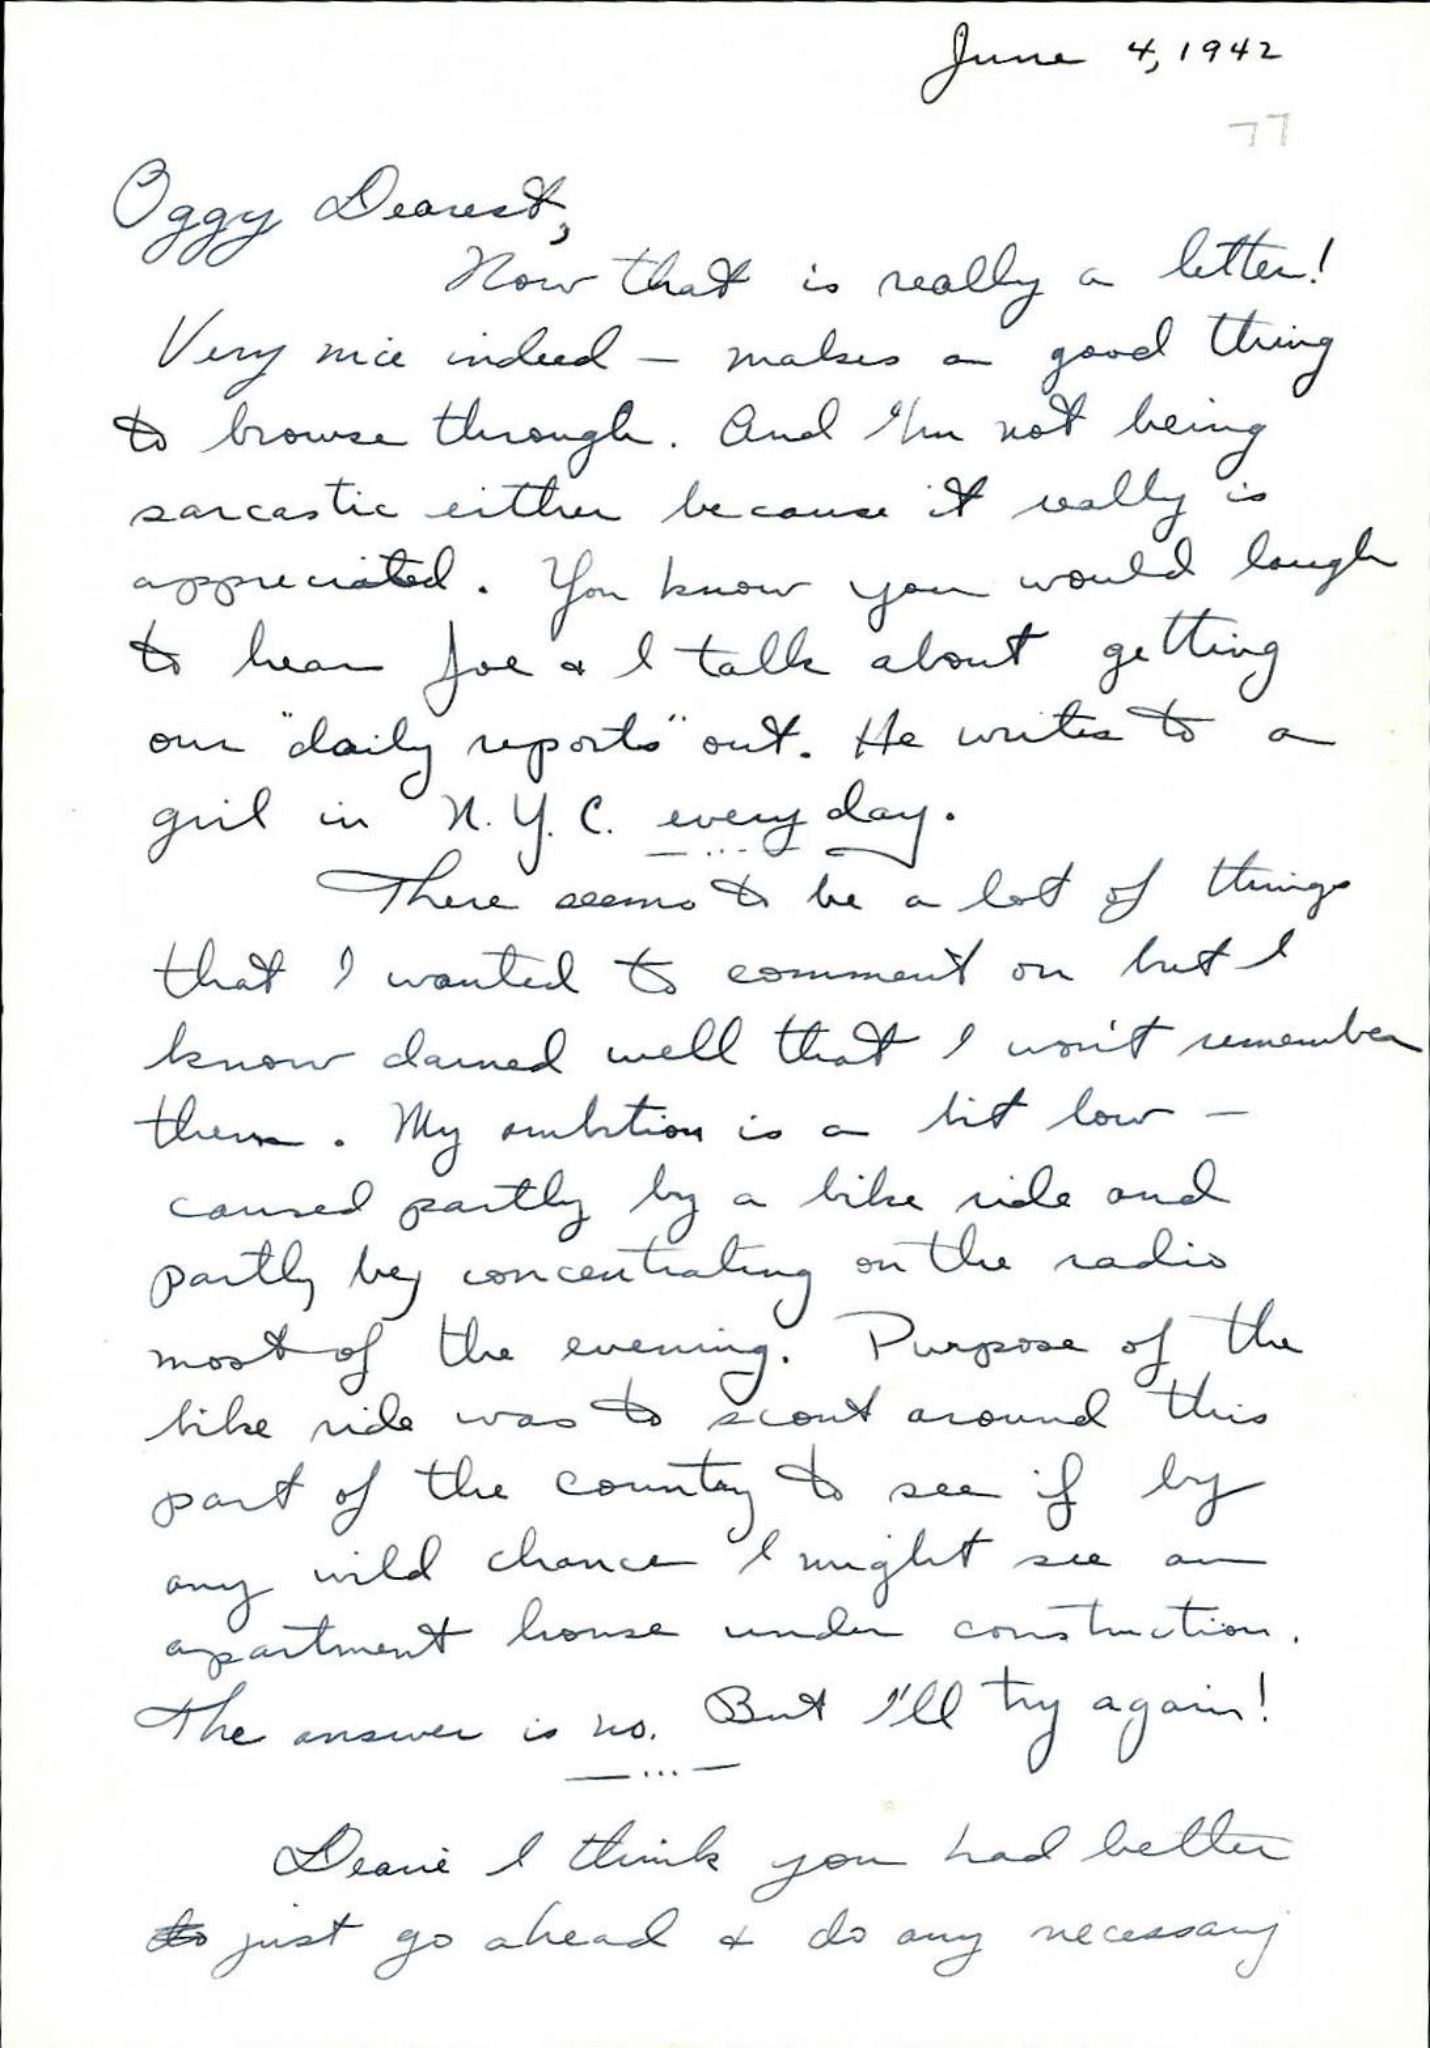 June 4, 1942
77
Oggy Dearest,
Now that is really a letter!
Very nice indeed – makes a good thing
to browse through. And I'm not being
sarcastic either because it really is
appreciated. You know you would laugh
to hear Joe & I talk about getting
our "daily reports" out. He writes to a
girl in N.Y.C. every day.
— ... —
There seems to be a lot of things
that I wanted to comment on but I
know darned well that I won't remember
them. My ambition is a bit low –
caused partly by a bike ride and
partly by concentrating on the radio
most of the evening. Purpose of the
bike ride was to scout around this
part of the country to see if by
any wild chance I might see an
apartment house under construction.
The answer is no. But I'll try again!
— ... —
Dearie I think you had better
to just go ahead & do any necessary